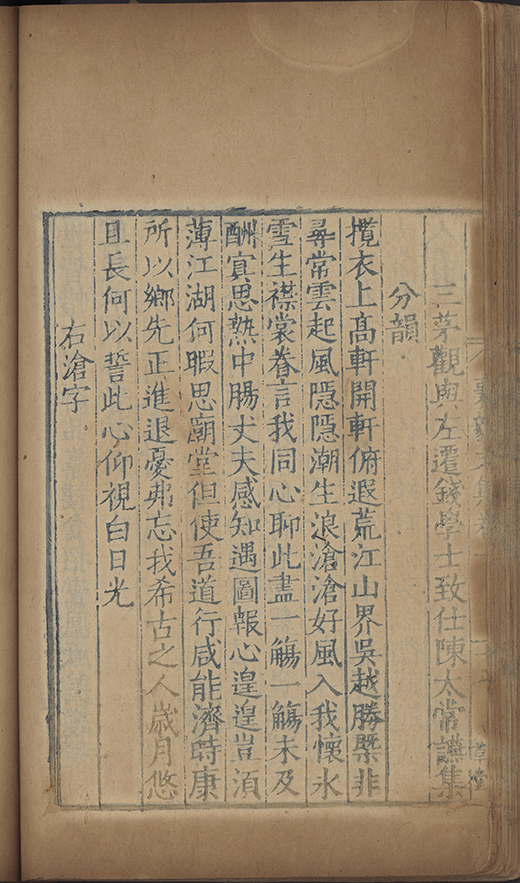 三茅觀與左遷錢學士致仕陳太常讌集
分韻
攬衣上高軒開軒俯遐荒江山界吳越勝槩非
尋常雲起風隱隱潮生浪滄滄好風入我懷氷
雪生襟裳眷言我同心聊此盡一觴一觴未及
酬寘思熱中腸丈夫感知遇圖報心遑遑豈湏
薄江湖何暇思廟堂但使吾道行咸能濟時康
所以鄉先正進退憂弗忘我希古之人歲月悠
且長何以誓此心仰視白日光
右滄字
草堂